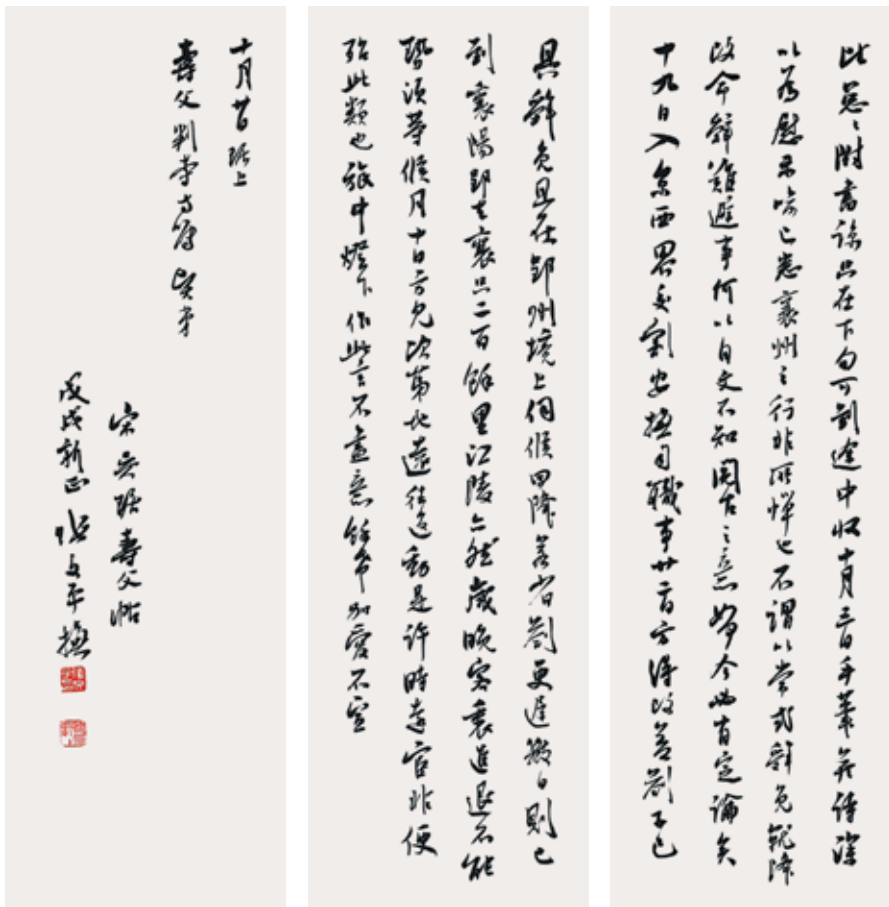 比忽忽附書諒只在下旬可到途中收十月三日手筆并詩深
以為慰示喻已悉襄州之行非所憚也不謂以嘗求辭免就降
改命辭難避事何以自文不知閤下之意如何今必有定論矣
十九日入京西界交割安撫司職事廿一日方得改差劄子已
具辭免且在郢州境上伺候回降差省劄更遲數日則已
到襄陽郢去襄只二百餘里江陵亦然歲晚客裏進退不能
勢須等候月十日方見次第此還往返動是許時遠宦非便
殆此類也旅中燈下作此言不盡意餘希加愛不宣
十月廿日琚上
壽父判寺寺簿賢弟
宋吳琚壽父帖
戊戌新正 張文平撫